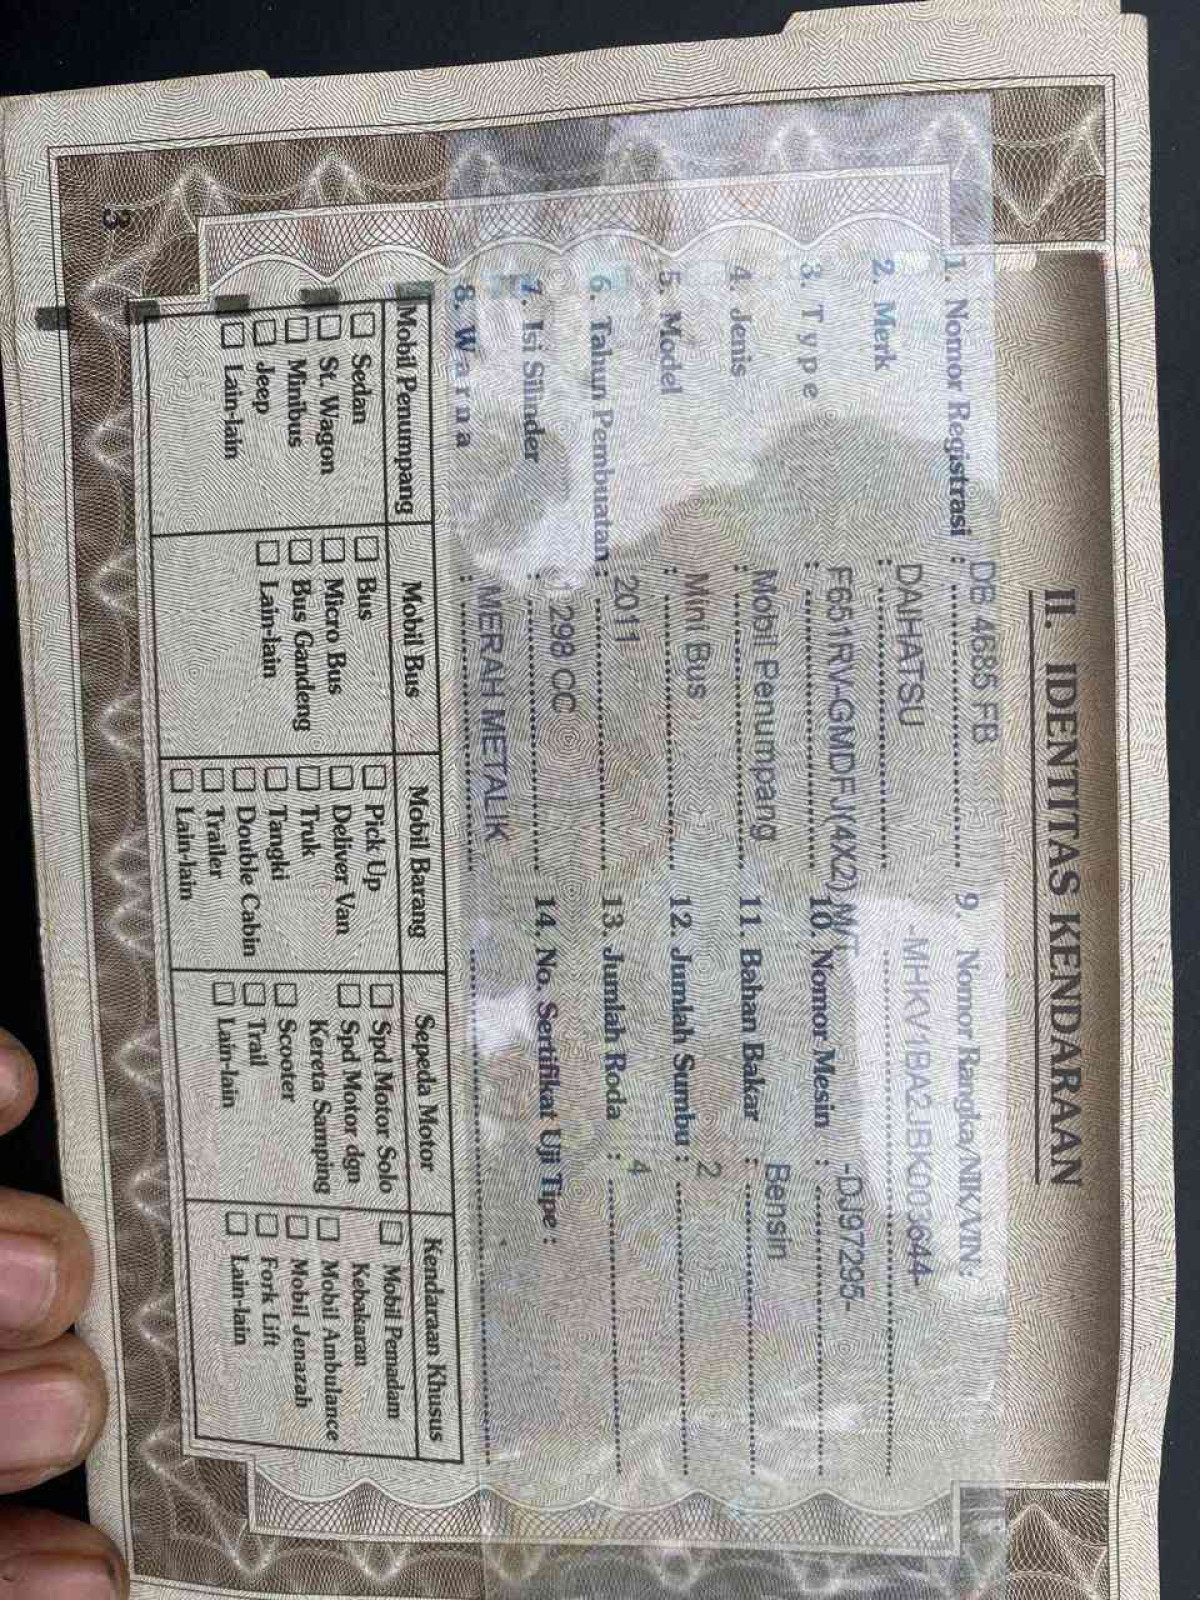 II. IDENTITAS KENDARAAN
1. Nomor Registrasi : DB 4685 FB
2. Merk : DAIHATSU
3. Type : F651RV-GMDFJ(4X2) M/T
4. Jenis : Mobil Penumpang
5. Model : Mini Bus
6. Tahun Pembuatan : 2011
7. Isi Silinder : 1298 CC
8. Warna : MERAH METALIK
9. Nomor Rangka/NIK/VIN :
-MHKV1BA2JBK003644-
10. Nomor Mesin : -DJ97295-
11. Bahan Bakar : Bensin
12. Jumlah Sumbu : 2
13. Jumlah Roda : 4
14. No. Sertifikat Uji Tipe :
Mobil Penumpang
Sedan
St. Wagon
Minibus
Jeep
Lain-lain
Mobil Bus
Bus
Micro Bus
Bus Gandeng
Lain-lain
Mobil Barang
Pick Up
Deliver Van
Truk
Tangki
Double Cabin
Trailer
Lain-lain
Sepeda Motor
Spd Motor Solo
Spd Motor dgn
Kereta Samping
Scooter
Trail
Lain-lain
Kendaraan Khusus
Mobil Pemadam
Kebakaran
Mobil Ambulance
Mobil Jenazah
Fork Lift
Lain-lain
3